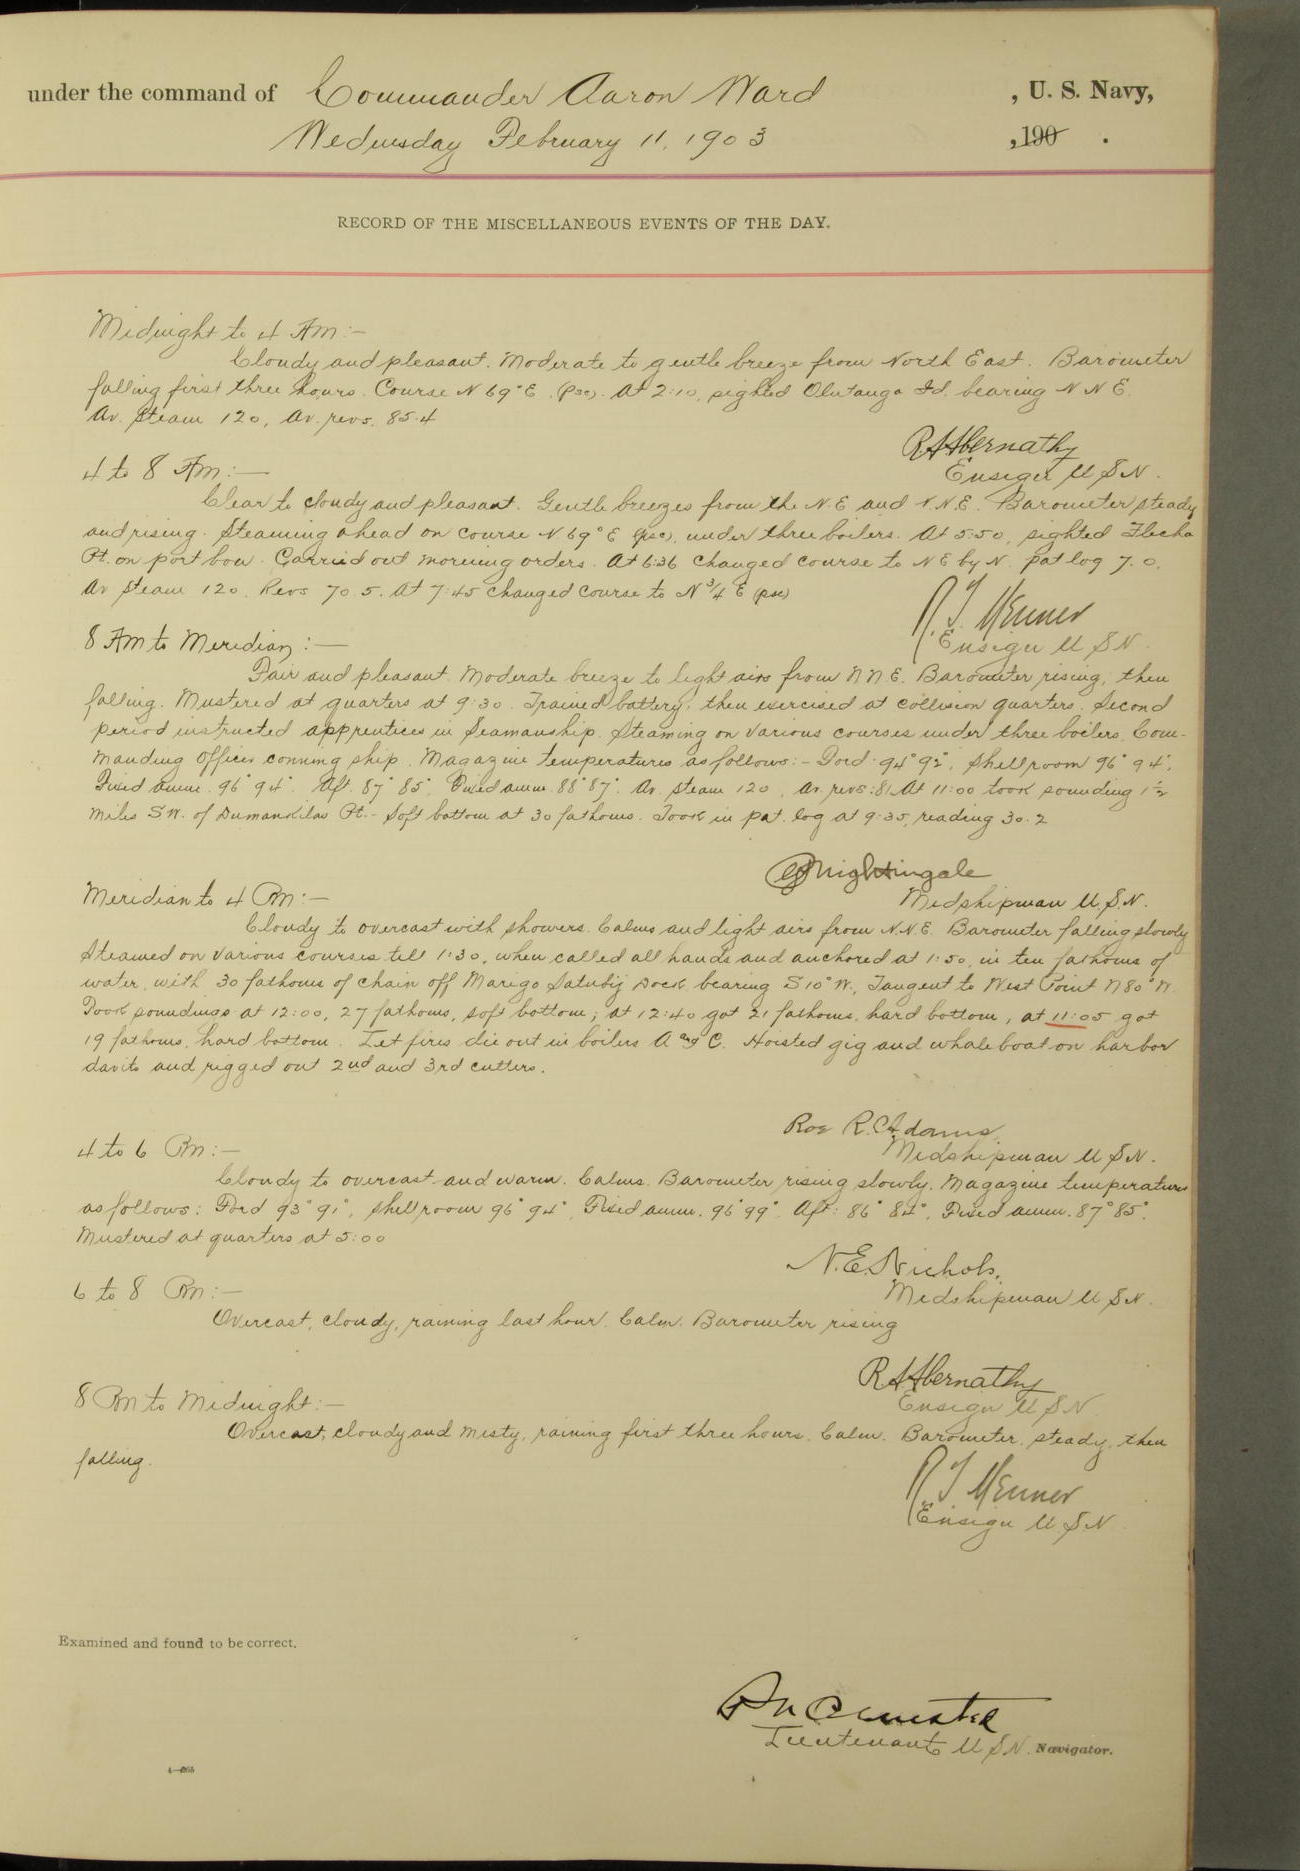 under the command of Commander Aaron Ward , U. S. Navy,
Wednesday February 11, 1903 , 190 .
RECORD OF THE MISCELLANEOUS EVENTS OF THE DAY.
Midnight to 4 Am:-
Cloudy and pleasant. Moderate to gentle breeze from North East. Barometer
falling first three hours. Course N 69° E (psc). At 2:10, sighted Olutanga Id. bearing N N E.
Av. Steam 120, Av. revs. 85.4
R A Abernathy
4 to 8 Am:-
Ensign U S N.
Clear to cloudy and pleasant. Gentle breezes from the N.E and N.N.E. Barometer steady
and rising. Steaming ahead on course N 69° E (psc), under three boilers. At 5:50, sighted Flecha
Pt. on port bow. Carried out morning orders. At 6:36 changed course to NE by N. pat log 7.0.
Av Steam 120. Revs 70.5. At 7:45 changed course to N 3/4 E (psc)
R. T. Menner
8 Am to Meridian:-
Ensign U S N.
Fair and pleasant. Moderate breeze to light airs from N N E. Barometer rising, then
falling. Mustered at quarters at 9:30. Trained battery, then exercised at collision quarters. Second
period instructed apprentices in Seamanship. Steaming on various courses under three boilers. Com-
manding Officer conning ship. Magazine temperatures as follows:- Ford. 94° 92°, Shell room 96° 94°,
Fixed amm. 96° 94°. Aft. 87° 85°. Fixed amm. 88° 87°. Av. steam 120, Av. revs: 81. At 11:00 took sounding 1 1/2
miles SW. of Dumankilas Pt. - Soft bottom at 30 fathoms. Took in pat. log at 9:35, reading 30.2
Nightingale
Meridian to 4 Pm:-
Midshipman U.S.N.
Cloudy to overcast with showers. Calms and light airs from N.N.E. Barometer falling slowly
Steamed on various courses till 1:30, when called all hands and anchored at 1:50, in ten fathoms of
water, with 30 fathoms of chain off Marigo Satubig Dock, bearing S 10° W., Tangent to West Point N 80° W.
Took soundings at 12:00, 27 fathoms, soft bottom; at 12:40 got 21 fathoms, hard bottom, at 11:05 got
19 fathoms, hard bottom. Let fires die out in boilers A and C. Hoisted gig and whaleboat on harbor
davits and rigged out 2nd and 3rd cutters.
Roe R. Adams
4 to 6 Pm:-
Midshipman U S N.
Cloudy to overcast and warm. Calms. Barometer rising slowly. Magazine temperatures
as follows: Ford 93° 91°, Shell room 96° 94°, Fixed amm. 96° 99°, Aft: 86° 84°, Fixed amm. 87° 85°.
Mustered at quarters at 5:00
N. E. Nichols,
6 to 8 Pm:-
Midshipman U S N.
Overcast, cloudy, raining last hour. Calm. Barometer rising
R A Abernathy
8 Pm to Midnight:-
Ensign U S N
Overcast, cloudy and misty, raining first three hours. Calm. Barometer, steady, then
falling.
R T Menner
Ensign U S N
Examined and found to be correct.
Lieutenant U S N. Navigator.